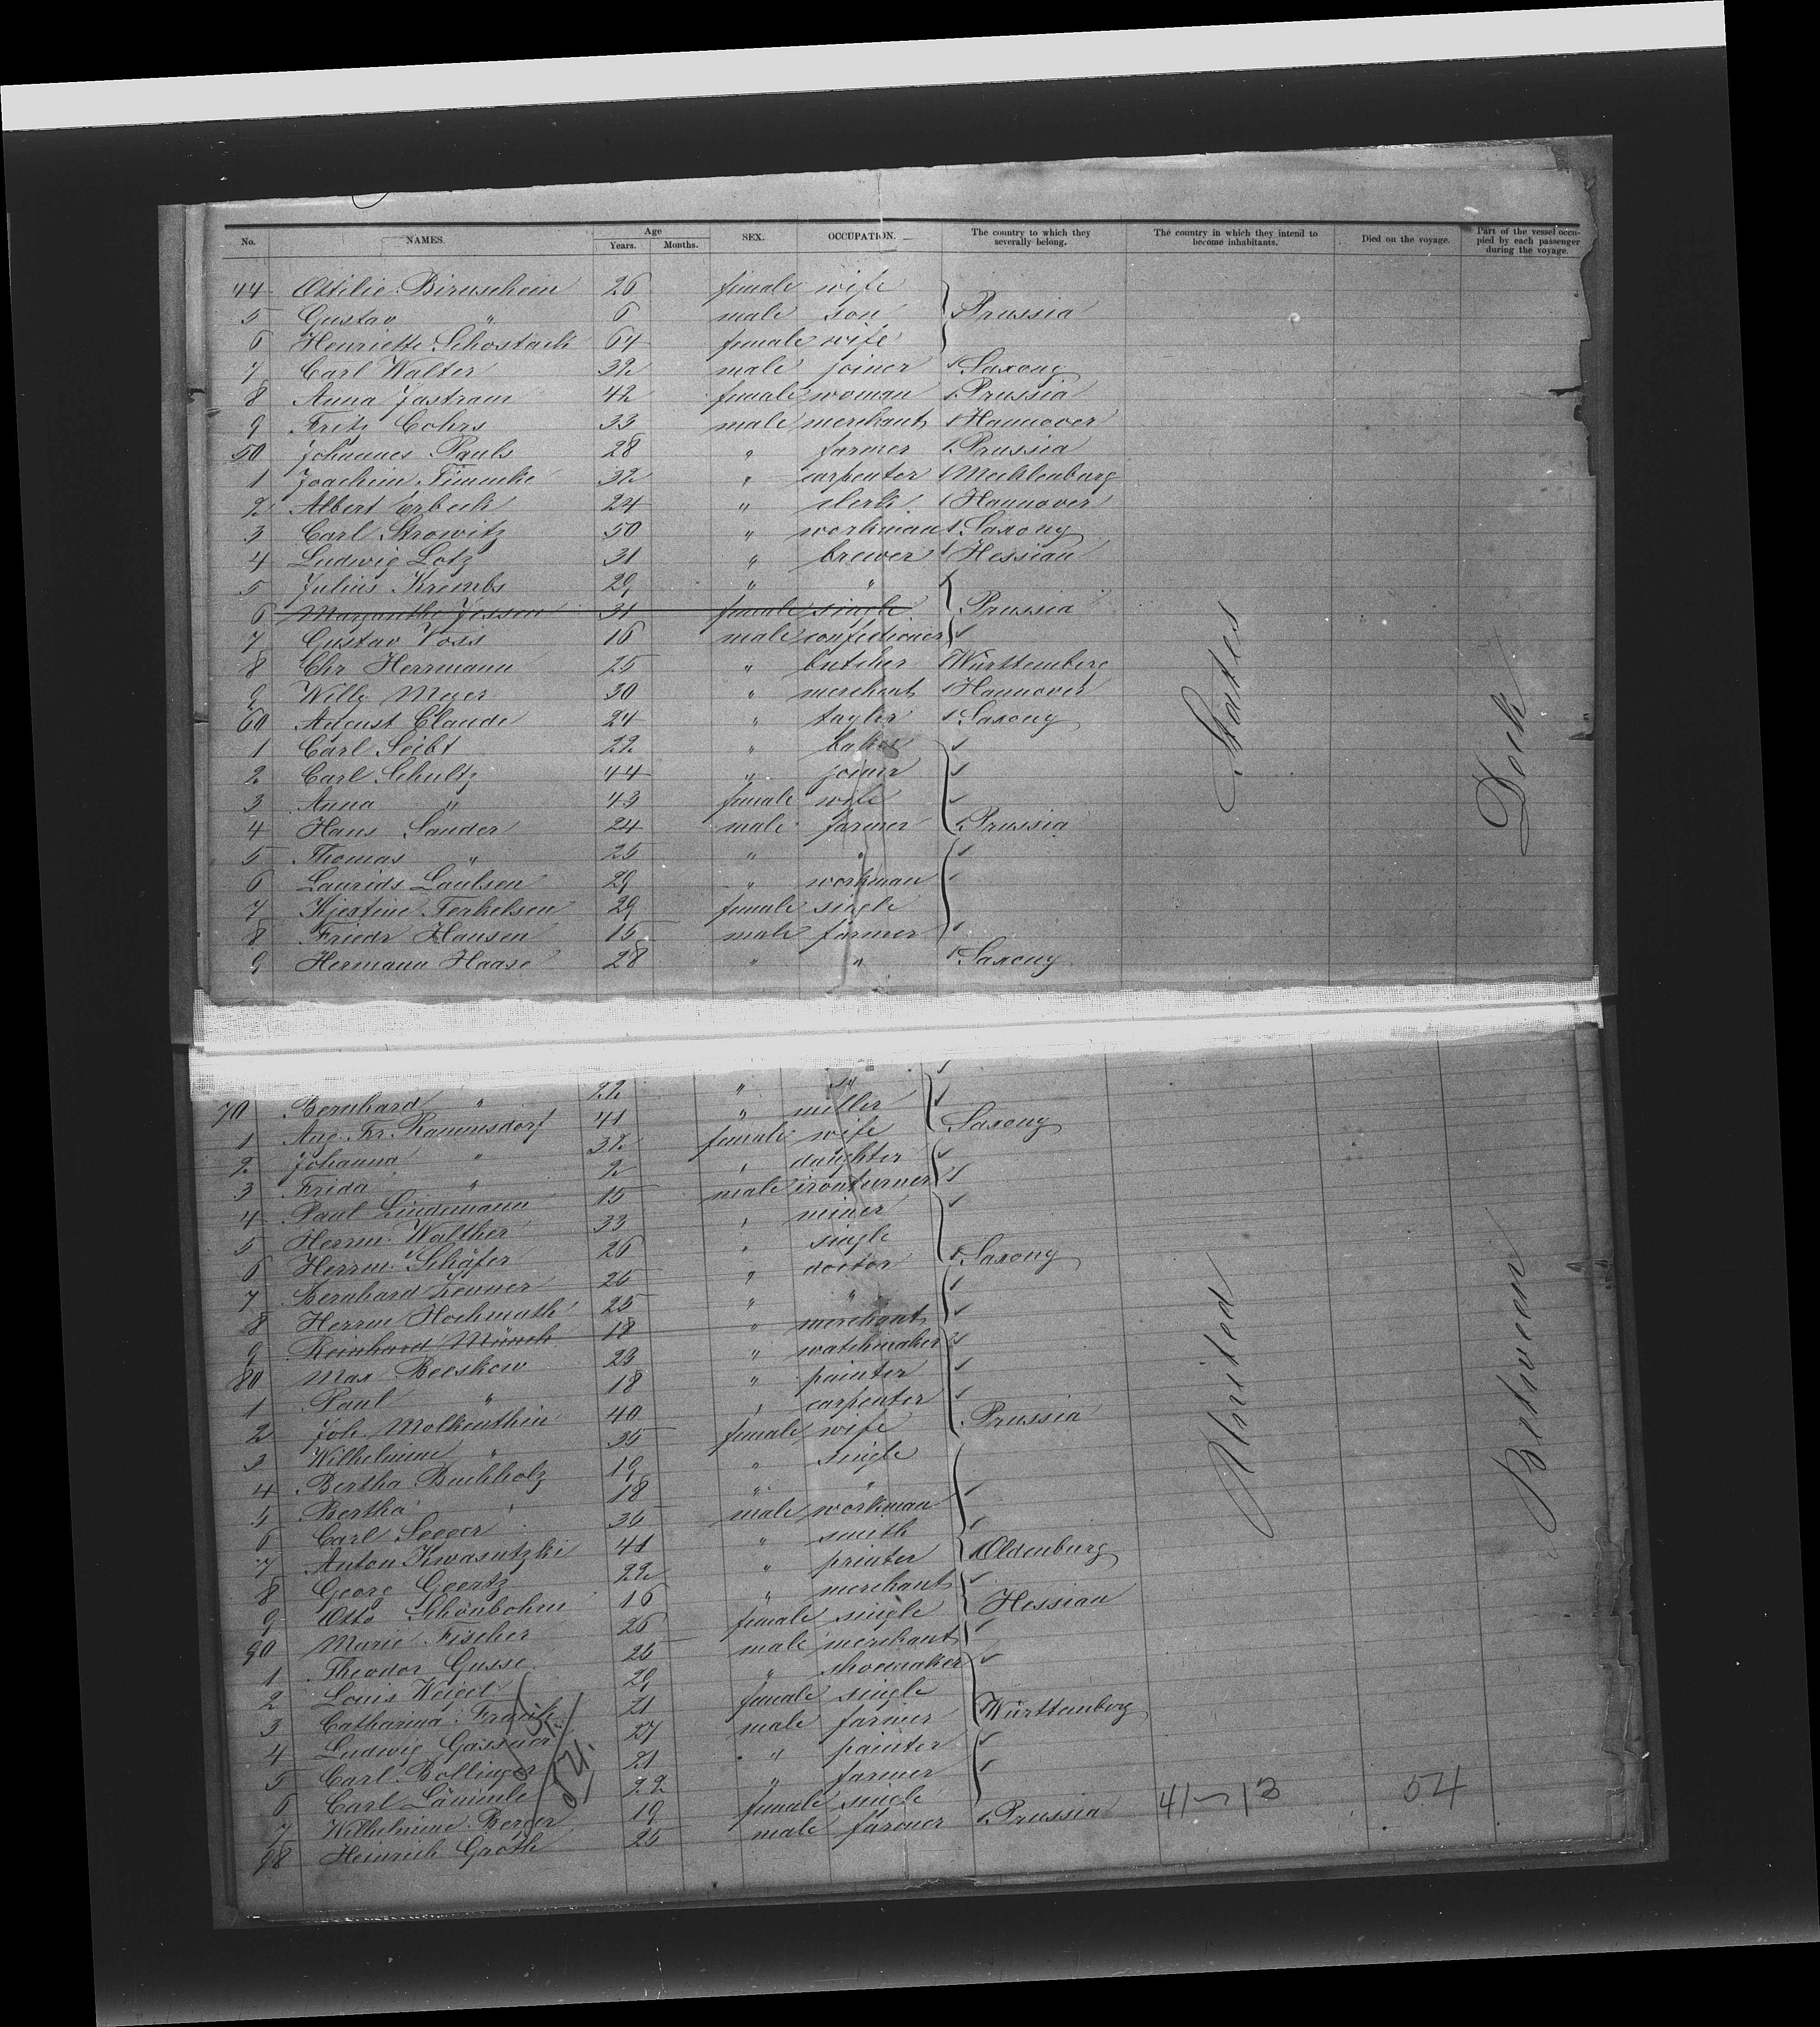 No. NAMES. Age Years. Months. SEX. OCCUPATION. The country to which they severally belong. The country in which they intend to become inhabitants. Died on the voyage. Part of the vessel occupied by each passenger during the voyage.
44 Ottilie Birnschein 26 female wife
5 Gustav " 6 male son Prussia
6 Henriette Schostack 64 female wife
7 Carl Walter 32 male joiner Saxony
8 Anna Jastram 42 female woman Prussia
9 Fritz Cohrs 33 male merchant Hannover
50 Johannes Pauls 28 " farmer Prussia
1 Joachim Timmke 32 " carpenter Mecklenburg
2 Albert Erbeck 24 " clerk Hannover
3 Carl Strowitz 50 " workman Saxony
4 Ludwig Lotz 31 " brewer Hessian
5 Julius Krembs 29 " "
6 Margarethe Jessen 31 female single Prussia
7 Gustav Voss 16 male confectioner
8 Chr Herrmann 25 " butcher Württemberg
9 Willy Meyer 30 " merchant Hannover
60 August Claude 24 " taylor Saxony
1 Carl Seibt 22 " baker
2 Carl Schultz 44 " joiner
3 Anna " 43 female wife
4 Hans Sander 24 male farmer Prussia
5 Thomas " 25 " "
6 Laurids Laulsen 29 " workman
7 Kjestine Terkelsen 29 female single
8 Friedr Hansen 15 male farmer
9 Hermann Haase 28 " " Saxony
70 Bernhard " 22 " "
1 Aug. Fr. Rammsdorf 41 " miller
2 Johanna " 32 female wife Saxony
3 Frida " 2 " daughter
4 Paul Lindemann 15 male ironturner
5 Herrm. Walther 33 " miner
6 Herrm. Schäfer 26 " single
7 Bernhard Zenner 25 " doctor Saxony
8 Herrm Hochmuth 25 " "
9 Reinhard Münch 18 " merchant
80 Max Beeskow 23 " watchmaker
1 Paul " 18 " painter
2 Joh. Molkenthin 40 " carpenter
3 Wilhelmine " 35 female wife Prussia
4 Bertha Buchholz 19 " single
5 Bertha " 18 " "
6 Carl Seeger 35 male workman
7 Anton Kwasutzki 41 " smith
8 Georg Geertz 22 " printer Oldenburg
9 Otto Schönbohm 16 " merchant
90 Marie Fischer 26 female single Hessian
1 Theodor Gusse 25 male merchant
2 Louis Weigel 29 " shoemaker
3 Catharina Frank 21 female single
4 Ludwig Gassner 27 male farmer Württemberg
5 Carl Bollinger 21 " painter
6 Carl Lämmle 22 " farmer
7 Wilhelmine Berger 19 female single
98 Heinrich Groth 25 male farmer Prussia
United States
Between Deck
41 – 13
54